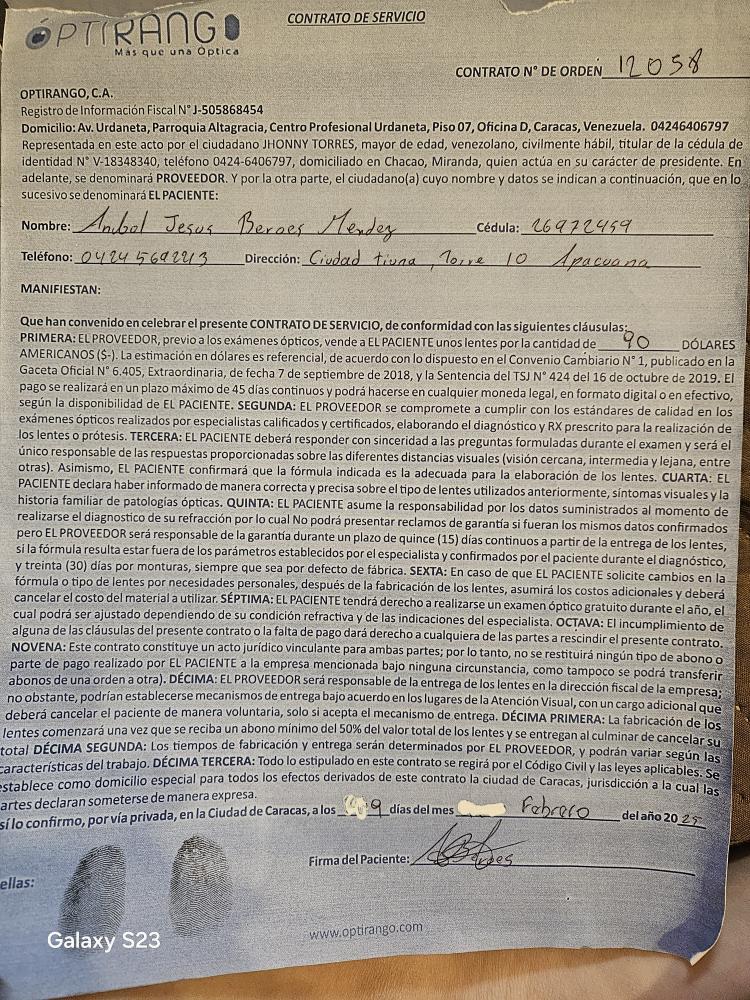 ÓPTIRANGO
Más que una Óptica
CONTRATO DE SERVICIO
CONTRATO N° DE ORDEN 12058
OPTIRANGO, C.A.
Registro de Información Fiscal N° J-505868454
Domicilio: Av. Urdaneta, Parroquia Altagracia, Centro Profesional Urdaneta, Piso 07, Oficina D, Caracas, Venezuela. 04246406797
Representada en este acto por el ciudadano JHONNY TORRES, mayor de edad, venezolano, civilmente hábil, titular de la cédula de
identidad N° V-18348340, teléfono 0424-6406797, domiciliado en Chacao, Miranda, quien actúa en su carácter de presidente. En
adelante, se denominará PROVEEDOR. Y por la otra parte, el ciudadano(a) cuyo nombre y datos se indican a continuación, que en lo
sucesivo se denominará EL PACIENTE:
Nombre: Anibal Jesus Beroes Mendez Cédula: 26972459
Teléfono: 0424 5692213 Dirección: Ciudad tiuna, Torre 10 Apacuana
MANIFIESTAN:
Que han convenido en celebrar el presente CONTRATO DE SERVICIO, de conformidad con las siguientes cláusulas:
PRIMERA: EL PROVEEDOR, previo a los exámenes ópticos, vende a EL PACIENTE unos lentes por la cantidad de 90 DÓLARES
AMERICANOS ($-). La estimación en dólares es referencial, de acuerdo con lo dispuesto en el Convenio Cambiario N° 1, publicado en la
Gaceta Oficial N° 6.405, Extraordinaria, de fecha 7 de septiembre de 2018, y la Sentencia del TSJ N° 424 del 16 de octubre de 2019. El
pago se realizará en un plazo máximo de 45 días continuos y podrá hacerse en cualquier moneda legal, en formato digital o en efectivo,
según la disponibilidad de EL PACIENTE. SEGUNDA: EL PROVEEDOR se compromete a cumplir con los estándares de calidad en los
exámenes ópticos realizados por especialistas calificados y certificados, elaborando el diagnóstico y RX prescrito para la realización de
los lentes o prótesis. TERCERA: EL PACIENTE deberá responder con sinceridad a las preguntas formuladas durante el examen y será el
único responsable de las respuestas proporcionadas sobre las diferentes distancias visuales (visión cercana, intermedia y lejana, entre
otras). Asimismo, EL PACIENTE confirmará que la fórmula indicada es la adecuada para la elaboración de los lentes. CUARTA: EL
PACIENTE declara haber informado de manera correcta y precisa sobre el tipo de lentes utilizados anteriormente, síntomas visuales y la
historia familiar de patologías ópticas. QUINTA: EL PACIENTE asume la responsabilidad por los datos suministrados al momento de
realizarse el diagnostico de su refracción por lo cual No podrá presentar reclamos de garantía si fueran los mismos datos confirmados
pero EL PROVEEDOR será responsable de la garantía durante un plazo de quince (15) días continuos a partir de la entrega de los lentes,
si la fórmula resulta estar fuera de los parámetros establecidos por el especialista y confirmados por el paciente durante el diagnóstico,
y treinta (30) días por monturas, siempre que sea por defecto de fábrica. SEXTA: En caso de que EL PACIENTE solicite cambios en la
fórmula o tipo de lentes por necesidades personales, después de la fabricación de los lentes, asumirá los costos adicionales y deberá
cancelar el costo del material a utilizar. SÉPTIMA: EL PACIENTE tendrá derecho a realizarse un examen óptico gratuito durante el año, el
cual podrá ser ajustado dependiendo de su condición refractiva y de las indicaciones del especialista. OCTAVA: El incumplimiento de
alguna de las cláusulas del presente contrato o la falta de pago dará derecho a cualquiera de las partes a rescindir el presente contrato.
NOVENA: Este contrato constituye un acto jurídico vinculante para ambas partes; por lo tanto, no se restituirá ningún tipo de abono o
parte de pago realizado por EL PACIENTE a la empresa mencionada bajo ninguna circunstancia, como tampoco se podrá transferir
abonos de una orden a otra). DÉCIMA: EL PROVEEDOR será responsable de la entrega de los lentes en la dirección fiscal de la empresa;
no obstante, podrían establecerse mecanismos de entrega bajo acuerdo en los lugares de la Atención Visual, con un cargo adicional que
deberá cancelar el paciente de manera voluntaria, solo si acepta el mecanismo de entrega. DÉCIMA PRIMERA: La fabricación de los
lentes comenzará una vez que se reciba un abono mínimo del 50% del valor total de los lentes y se entregan al culminar de cancelar su
total DÉCIMA SEGUNDA: Los tiempos de fabricación y entrega serán determinados por EL PROVEEDOR, y podrán variar según las
características del trabajo. DÉCIMA TERCERA: Todo lo estipulado en este contrato se regirá por el Código Civil y las leyes aplicables. Se
establece como domicilio especial para todos los efectos derivados de este contrato la ciudad de Caracas, jurisdicción a la cual las
artes declaran someterse de manera expresa.
sí lo confirmo, por vía privada, en la Ciudad de Caracas, a los 9 días del mes Febrero del año 2025
Firma del Paciente:
ellas:
www.optirango.com
Galaxy S23